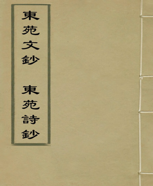 東苑文鈔
東苑詩鈔